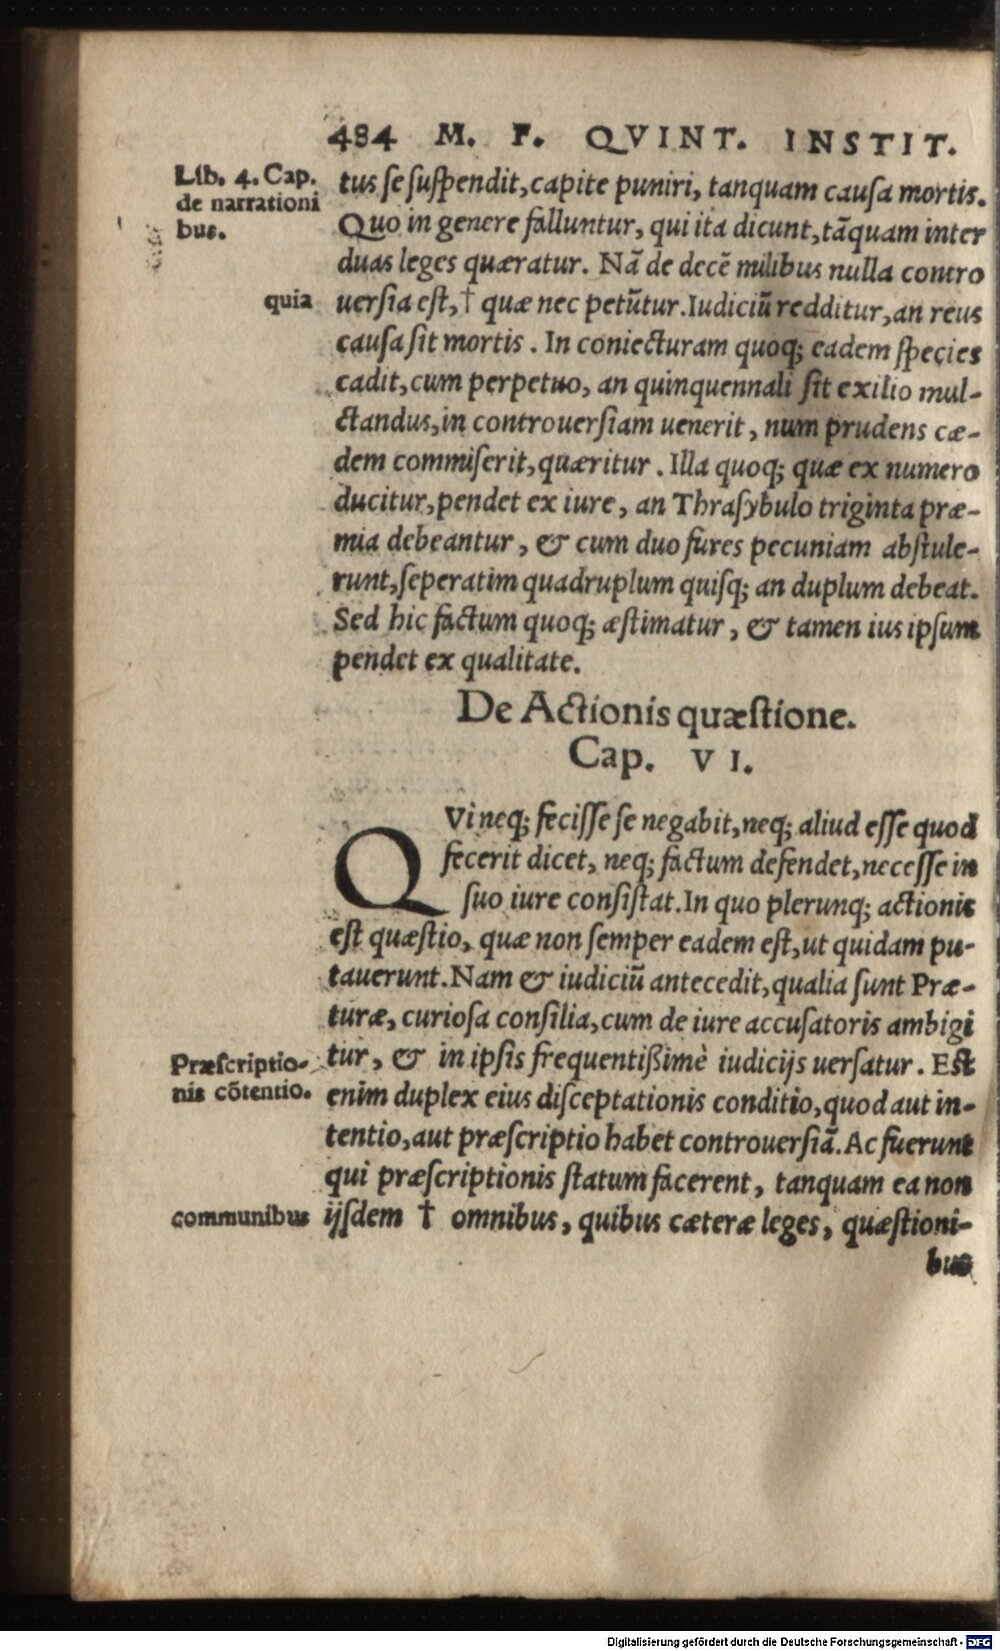 484 M. F. QVINT. INSTIT.
Lib. 4. Cap.
de narrationi
bus.
tus se suspendit, capite puniri, tanquam causa mortis.
Quo in genere falluntur, qui ita dicunt, tāquam inter
duas leges quæratur. Nā de decē milibus nulla contro
quia
uersia est, † quæ nec petūtur. Iudiciū redditur, an reus
causa sit mortis. In coniecturam quoq; eadem species
cadit, cum perpetuo, an quinquennali sit exilio mul-
ctandus, in controuersiam uenerit, num prudens cæ-
dem commiserit, quæritur. Illa quoq; quæ ex numero
ducitur, pendet ex iure, an Thrasybulo triginta præ-
mia debeantur, & cum duo fures pecuniam abstule-
runt, seperatim quadruplum quisq; an duplum debeat.
Sed hic factum quoq; æstimatur, & tamen ius ipsum
pendet ex qualitate.
De Actionis quæstione.
Cap. VI.
QVi neq; fecisse se negabit, neq; aliud esse quod
fecerit dicet, neq; factum defendet, necesse in
suo iure consistat. In quo plerunq; actionis
est quæstio, quæ non semper eadem est, ut quidam pu-
tauerunt. Nam & iudiciū antecedit, qualia sunt Præ-
turæ, curiosa consilia, cum de iure accusatoris ambigi
Præscriptio-
nis cōtentio.
tur, & in ipsis frequentißimè iudicijs uersatur. Est
enim duplex eius disceptationis conditio, quod aut in-
tentio, aut præscriptio habet controuersiā. Ac fuerunt
qui præscriptionis statum facerent, tanquam ea non
communibus
ijsdem † omnibus, quibus cæteræ leges, quæstioni-
bus
Digitalisierung gefördert durch die Deutsche Forschungsgemeinschaft - DFG